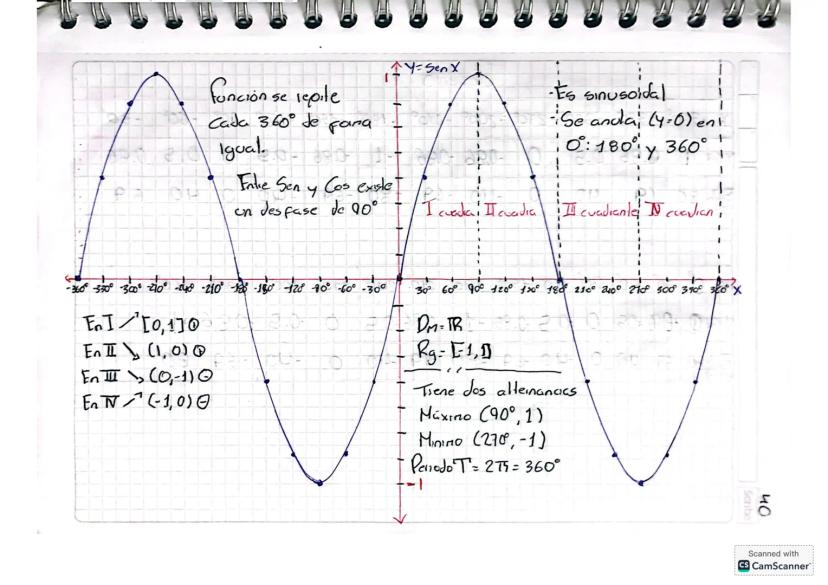 Y=Sen X
1
Función se repite
cada 360° de forma
igual.
Entre Sen y Cos existe
un desfase de 90°
-Es sinusoidal
-Se anula (y=0) en
0°: 180° y 360°
I cuadra II cuadra III cuadrante IV cuadran
-360° -330° -300° -270° -240° -210° -180° -150° -120° -90° -60° -30° 30° 60° 90° 120° 150° 180° 210° 240° 270° 300° 330° 360° X
En I ↗ [0,1] ⊕
En II ↘ (1,0) ⊕
En III ↘ (0,-1) ⊖
En IV ↗ (-1,0) ⊖
Dm=IR
Rg= [-1,1]
Tiene dos alternancias
Máximo (90°, 1)
Minimo (270°, -1)
Periodo T = 2π = 360°
-1
40
Scribe
Scanned with
CS CamScanner